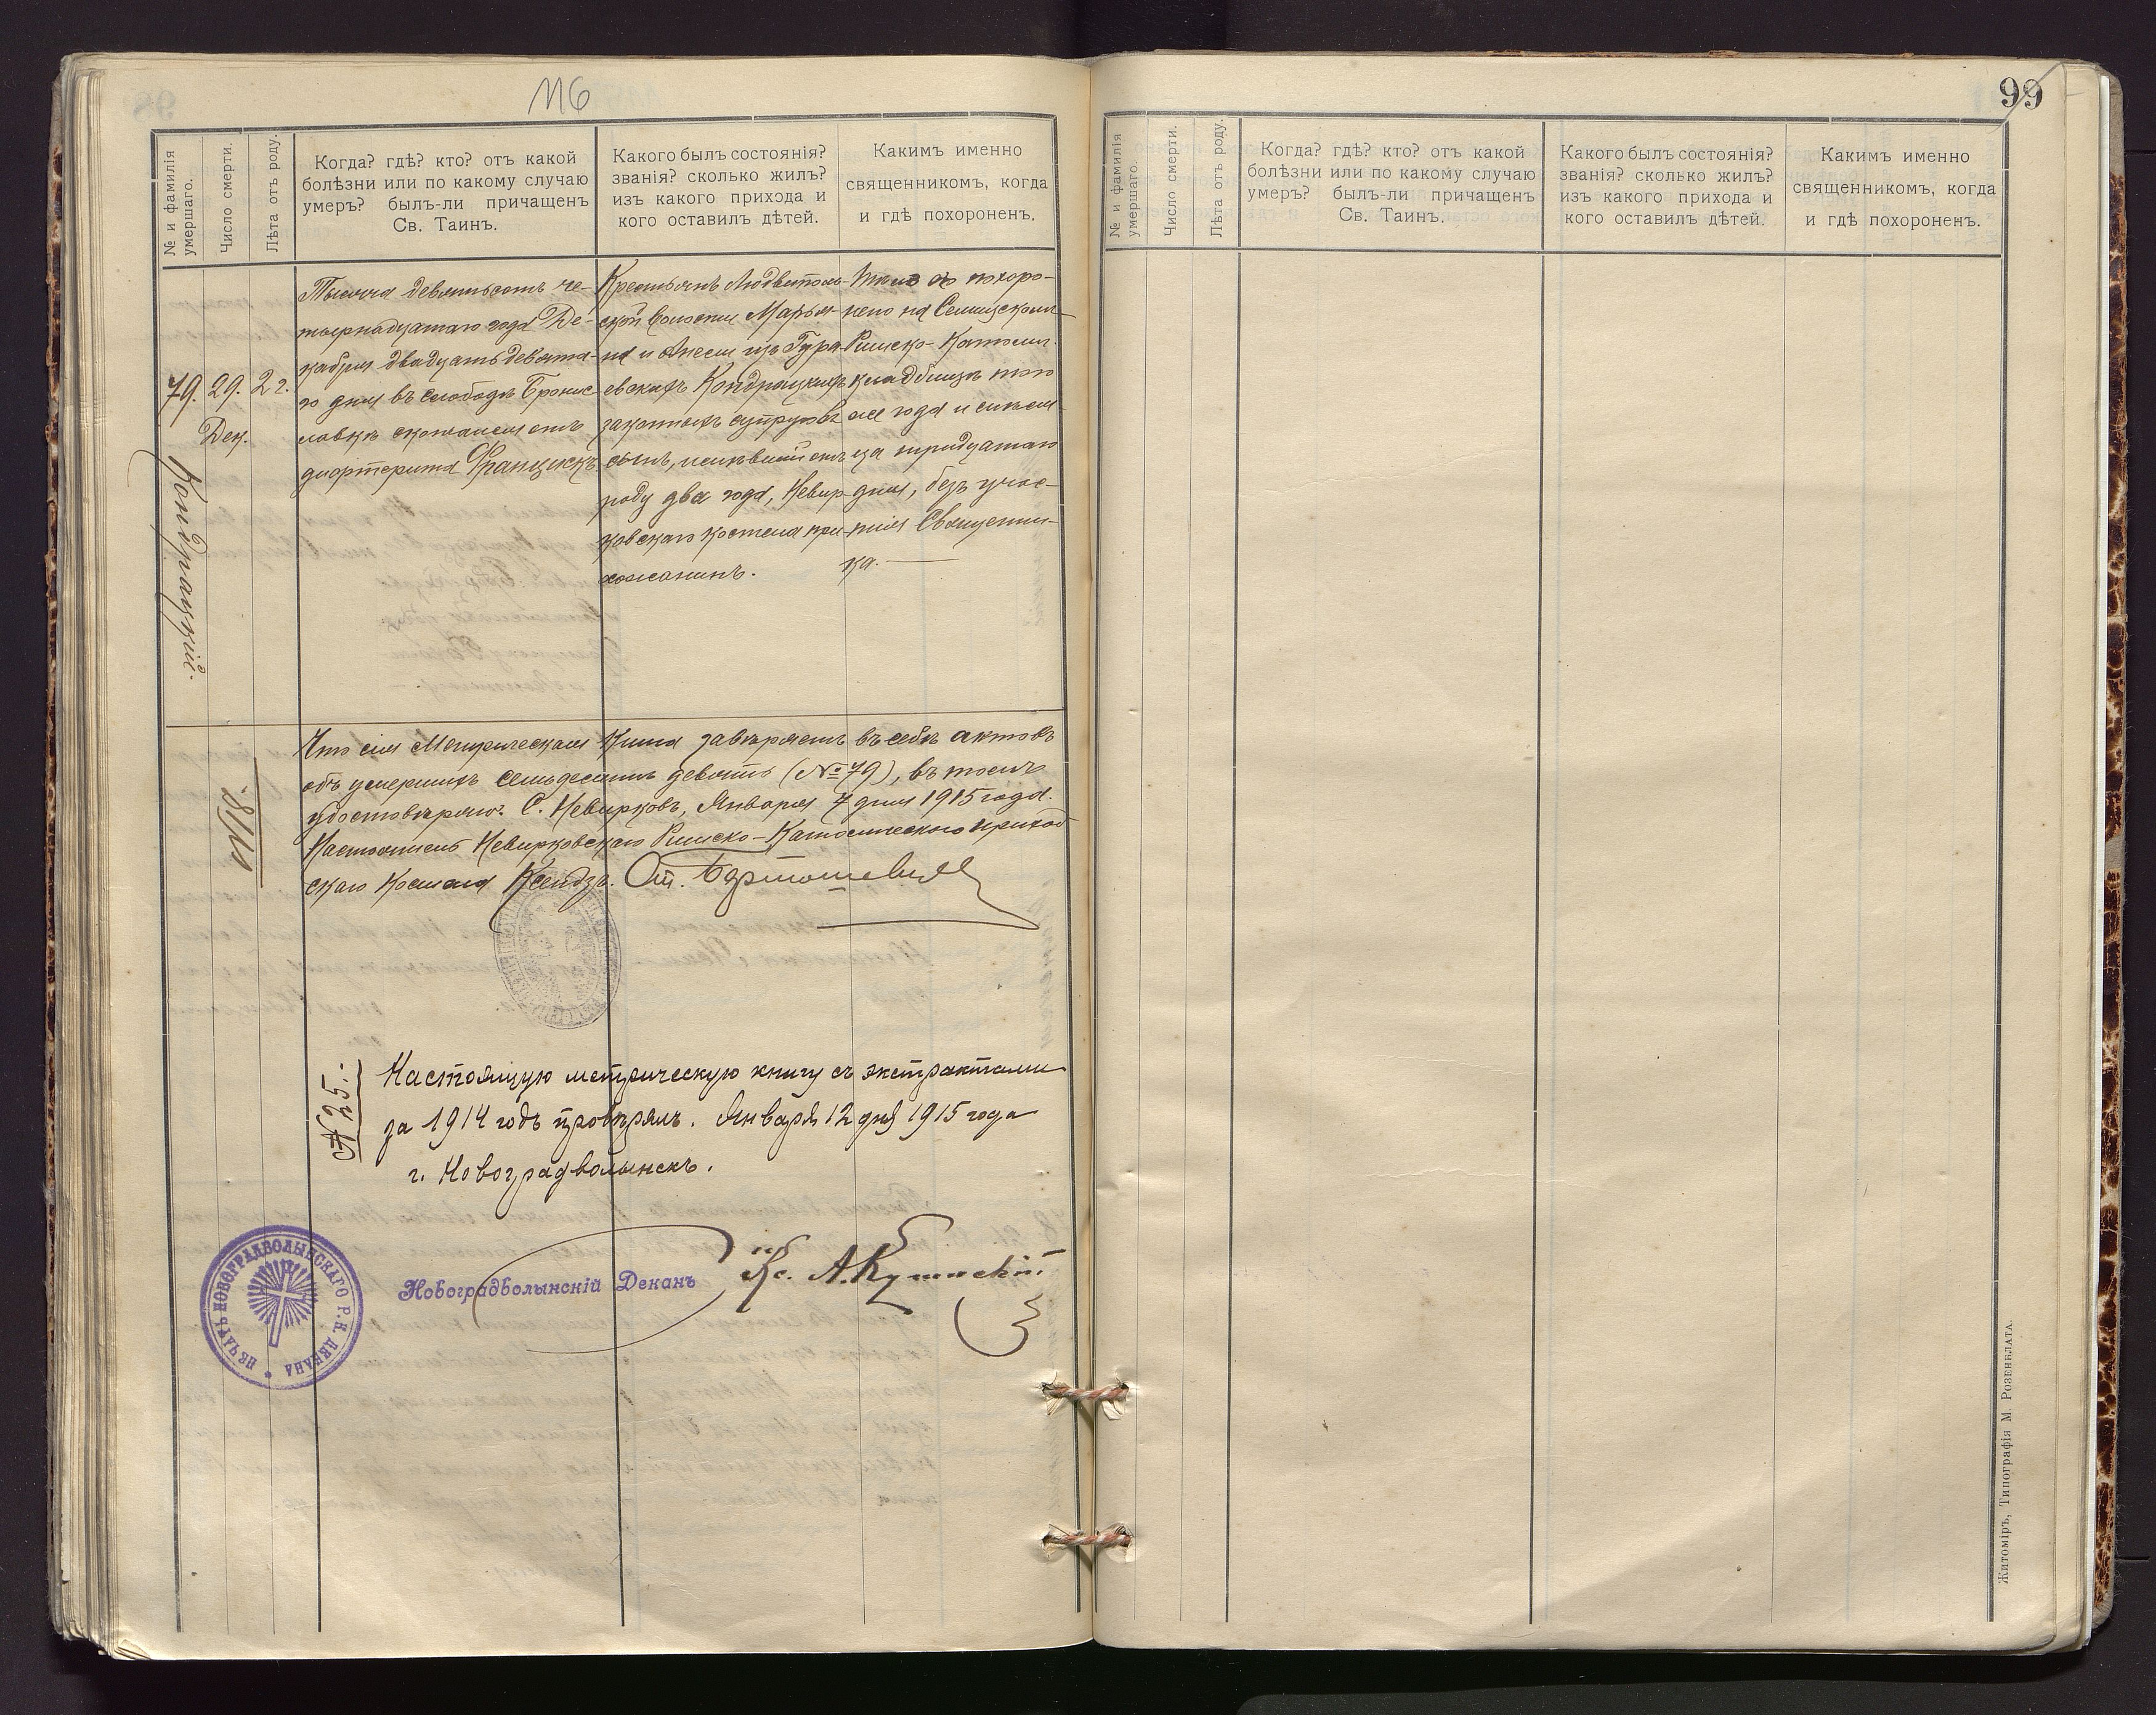 116
№ и фамилія умершаго.
Число смерти.
Лѣта отъ роду.
Когда? гдѣ? кто? отъ какой
болѣзни или по какому случаю
умеръ? былъ-ли причащенъ
Св. Таинъ.
Какого былъ состоянія?
званія? сколько жилъ?
изъ какого прихода и
кого оставилъ дѣтей.
Какимъ именно
священникомъ, когда
и гдѣ похороненъ.
79.
Кондрацкій.
29.
Дек.
2 г.
Тысяча девятьсотъ че-
тырнадцатаго года Де-
кабря двадцать девята-
го дня въ слободѣ Бронис
лавкѣ скончался отъ
дифтерита Францискъ.
Крестьянъ Людвиполь-
ской волости Марья-
на и Анели изъ Гура-
евскихъ Кондрацкихъ
законныхъ супруговъ
сынъ, имѣвшій отъ
роду два года, Невир-
ковскаго костела при-
хожанинъ.
Тѣло его похоро-
нено на
Римско-Католич.
кладбищѣ того
же года и мѣся-
ца тридцатаго
дня, безъ учас-
тія Священни-
ка.
Что сія Метрическая Книга заключаетъ въ себѣ актовъ
объ умершихъ семьдесятъ девять (№ 79), въ томъ
удостовѣряю. С. Невирковъ, Января 7 дня 1915 года.
Настоятель Невирковскаго Римско-Католическаго приход
скаго Костела Ксендзъ. Ст. Бартошевичъ
№ 25.
Настоящую метрическую книгу съ экстрактами
за 1914 годъ провѣрялъ. Января 12 дня 1915 года
г. Новоградволынскъ.
ПЕЧАТЬ НОВОГРАДВОЛЫНСКАГО Р. К. ДЕКАНА
Новоградволынскій Деканъ
Кс. А.
99
№ и фамилія умершаго.
Число смерти.
Лѣта отъ роду.
Когда? гдѣ? кто? отъ какой
болѣзни или по какому случаю
умеръ? былъ-ли причащенъ
Св. Таинъ.
Какого былъ состоянія?
званія? сколько жилъ?
изъ какого прихода и
кого оставилъ дѣтей.
Какимъ именно
священникомъ, когда
и гдѣ похороненъ.
Житоміръ, Типографія М. Розенблата.